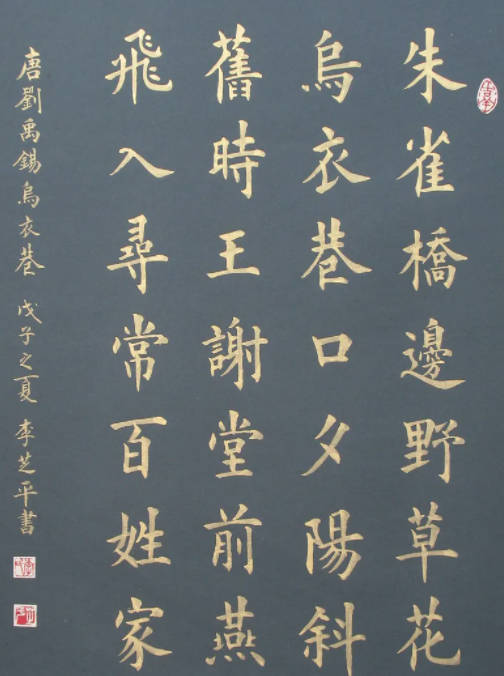 朱雀橋邊野草花
烏衣巷口夕陽斜
舊時王謝堂前燕
飛入尋常百姓家
唐劉禹錫烏衣巷 戊子之夏 李芝平書